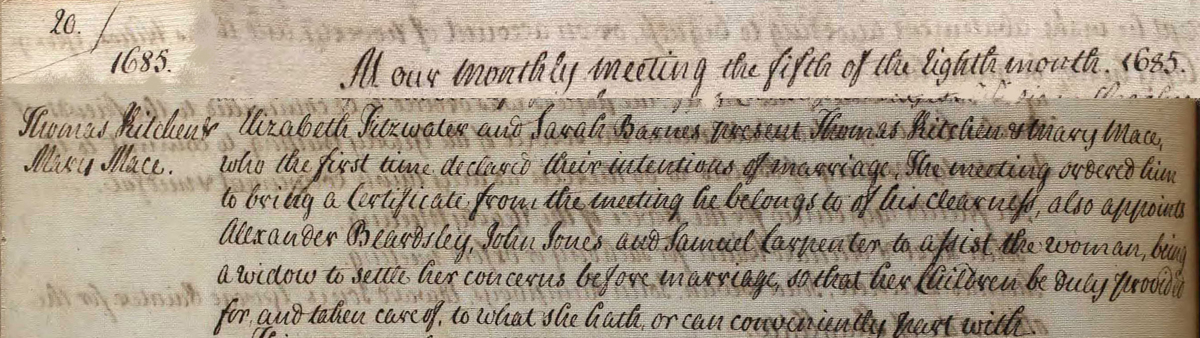 20.
1685.
At our monthly meeting the fifth of the Eighth month. 1685.
Thomas Kitchen &
Mary Mace.
Elizabeth Fitzwater and Sarah Barnes present Thomas Kitchen & Mary Mace,
who the first time declared their intentions of marriage. The meeting ordered him
to bring a Certificate from the meeting he belongs to of his clearness, also appoints
Alexander Beardsley, John Jones and Samuel Carpenter to assist the woman, being
a widow to settle her concerns before marriage, so that her Children be duly provided
for, and taken care of, to what she hath, or can conveniently part with.